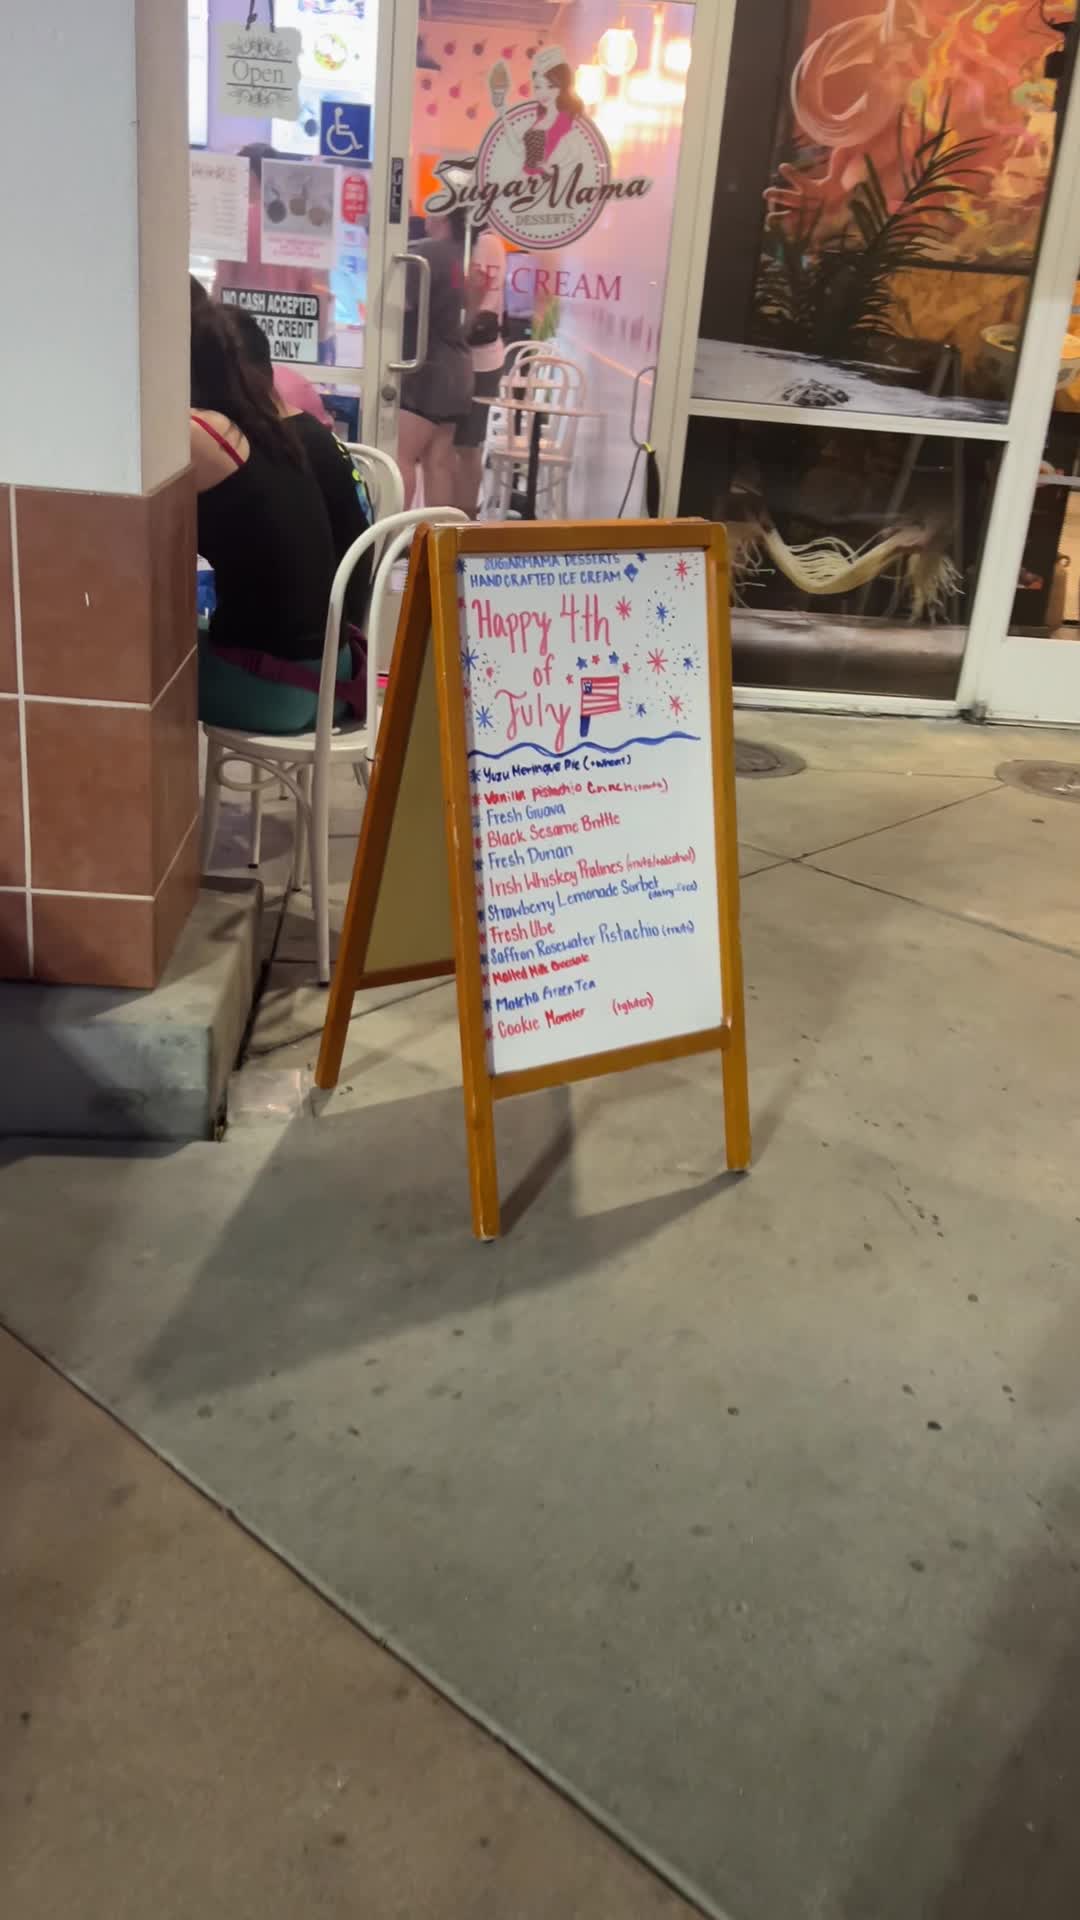 Open
PULL
SugarMama
DESSERTS
ICE CREAM
NO CASH ACCEPTED
OR CREDIT
ONLY
SUGARMAMA DESSERTS
HANDCRAFTED ICE CREAM
Happy 4th
of
July
* Yuzu Meringue Pie (+wheat)
* Vanilla Pistachio Crunch (+nuts)
* Fresh Guava
* Black Sesame Brittle
* Fresh Durian
* Irish Whiskey Pralines (+nuts/+alcohol)
* Strawberry Lemonade Sorbet (dairy-free)
* Fresh Ube
* Saffron Rosewater Pistachio (+nuts)
* Malted Milk Chocolate
* Matcha Green Tea
* Cookie Monster (+gluten)